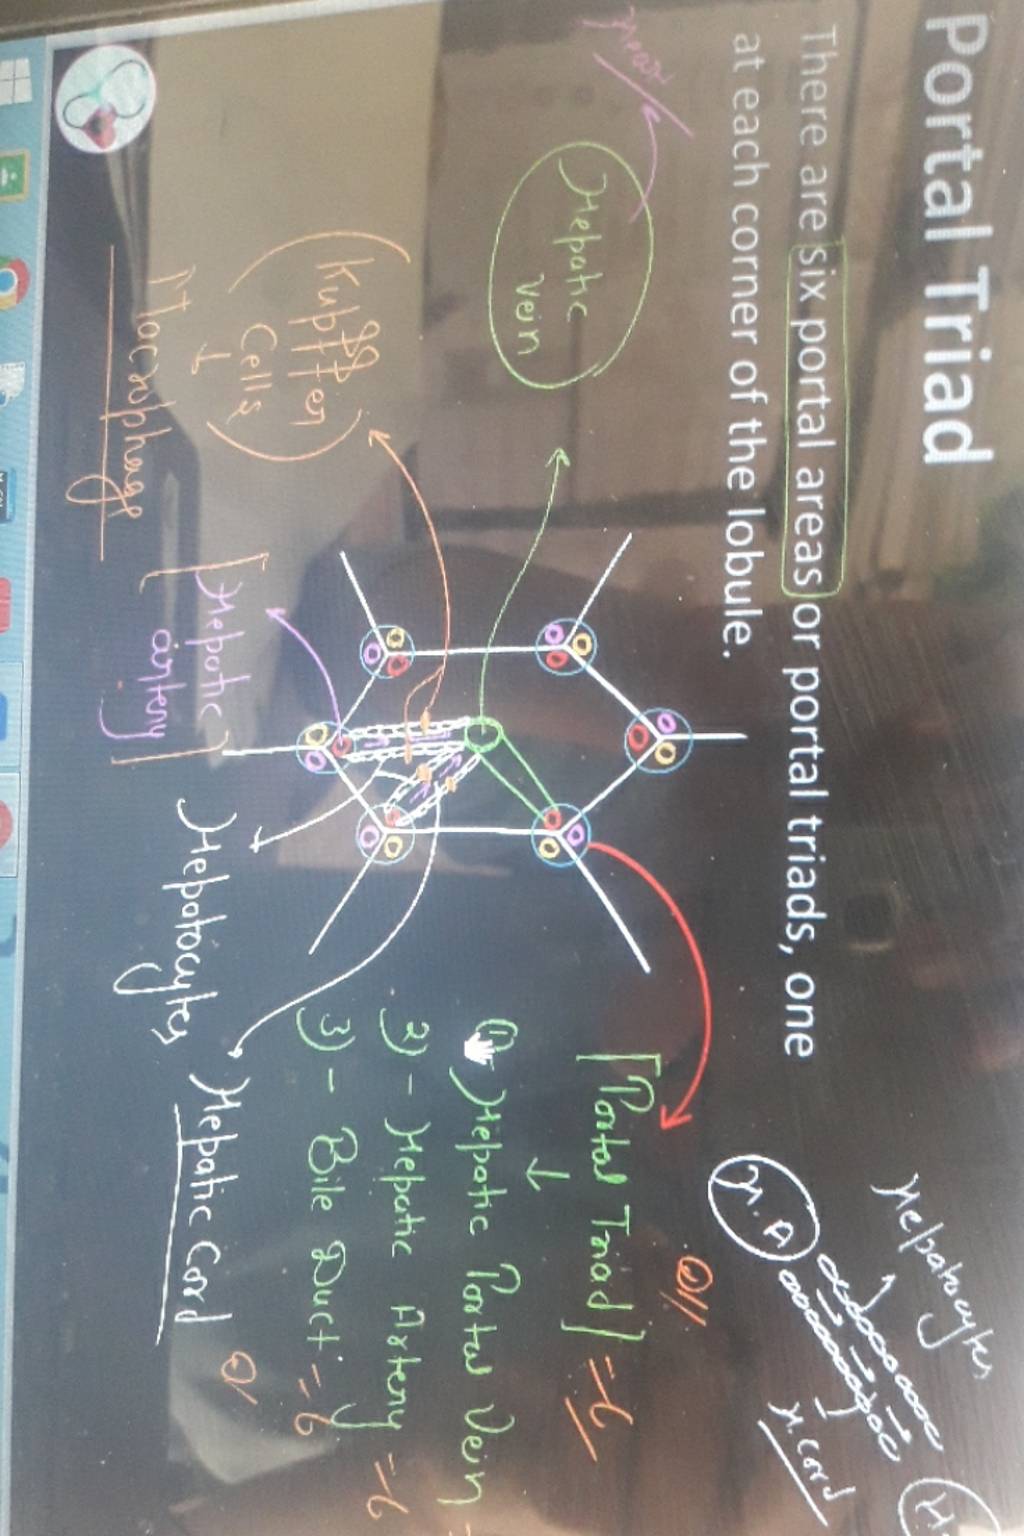 Portal Triad
There are six portal areas or portal triads, one
at each corner of the lobule.
Hepatocytes
H.A
H
H. Cord
Heart
Hepatic
Vein
Q//
[Portal Triad] = 6
↓
1) Hepatic Portal Vein =
2) - Hepatic Artery = 6
3) - Bile Duct = 6
(Kupffer
Cells)
↓
Macrophage
[Hepatic
artery]
Hepatocytes
Hepatic Cord
Q/